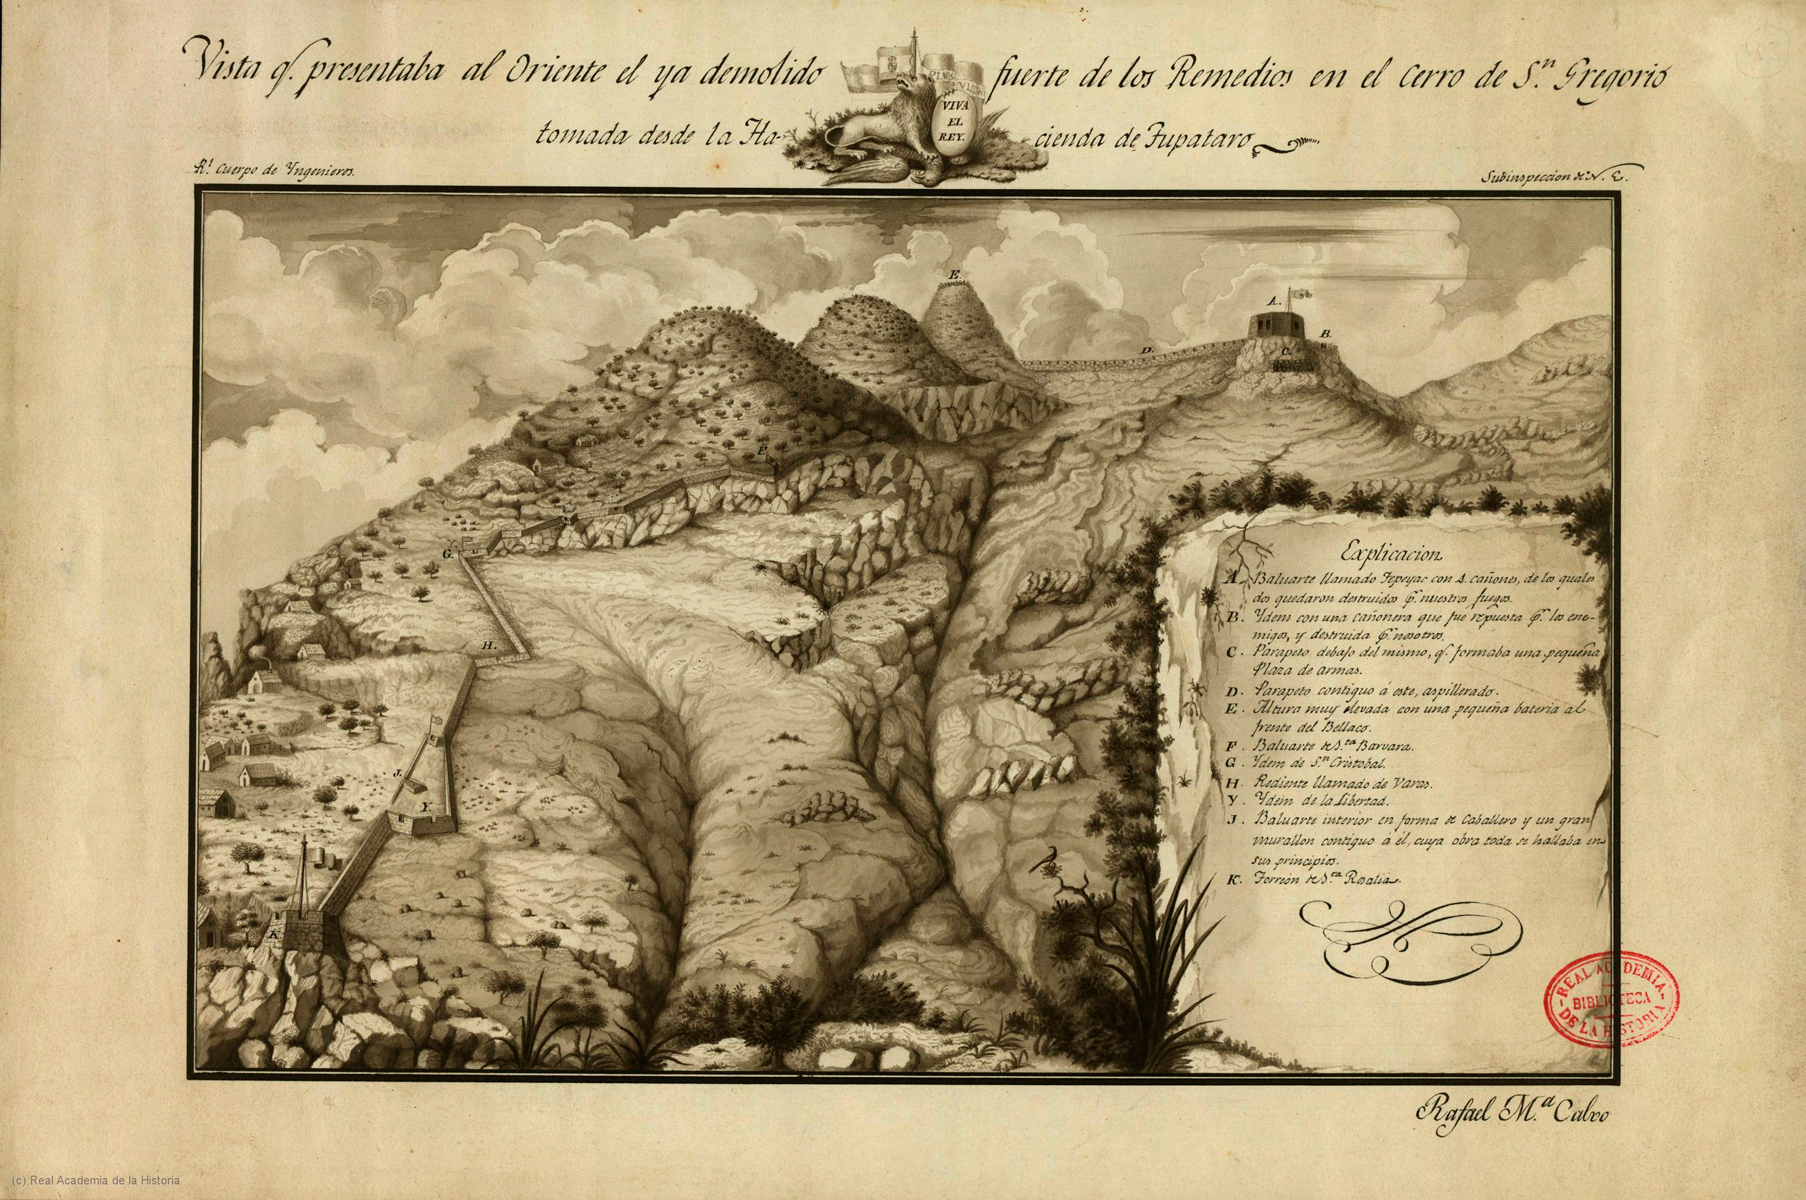 Vista q.^e presentaba al Oriente el ya demolido fuerte de los Remedios en el Cerro de S.^n Gregorio
tomada desde la Hacienda de Tupataro
PLUS
VIVA
EL
REY.
R.^l Cuerpo de Yngenieros.
Subinspeccion de N. E.
E.
A.
B.
D.
C.
F.
G.
H.
J.
Y.
K
Explicacion
A. Baluarte llamado Tepeyac con 4 cañones, de los quales
dos quedaron destruidos p.^r nuestros fuegos.
B. Ydem con una cañonera que fue repuesta p.^r los ene-
migos, y destruida p.^r nosotros.
C. Parapeto debajo del mismo, q.^e formaba una pequeña
Plaza de armas.
D. Parapeto contiguo á este, aspillerado.
E. Altura muy elevada con una pequeña bateria al
frente del Bellaco.
F. Baluarte de S.^ta Barvara.
G. Ydem de S.^n Cristobal.
H. Rediente llamado de Varas.
Y. Ydem de la Libertad.
J. Baluarte interior en forma de Caballero y un gran
murallon contiguo á él, cuya obra toda se hallaba en
sus principios.
K. Torreón de S.^ta Rosalia.
REAL ACADEMIA
BIBLIOTECA
DE LA HISTORIA
Rafael M.^a Calvo
(c) Real Academia de la Historia